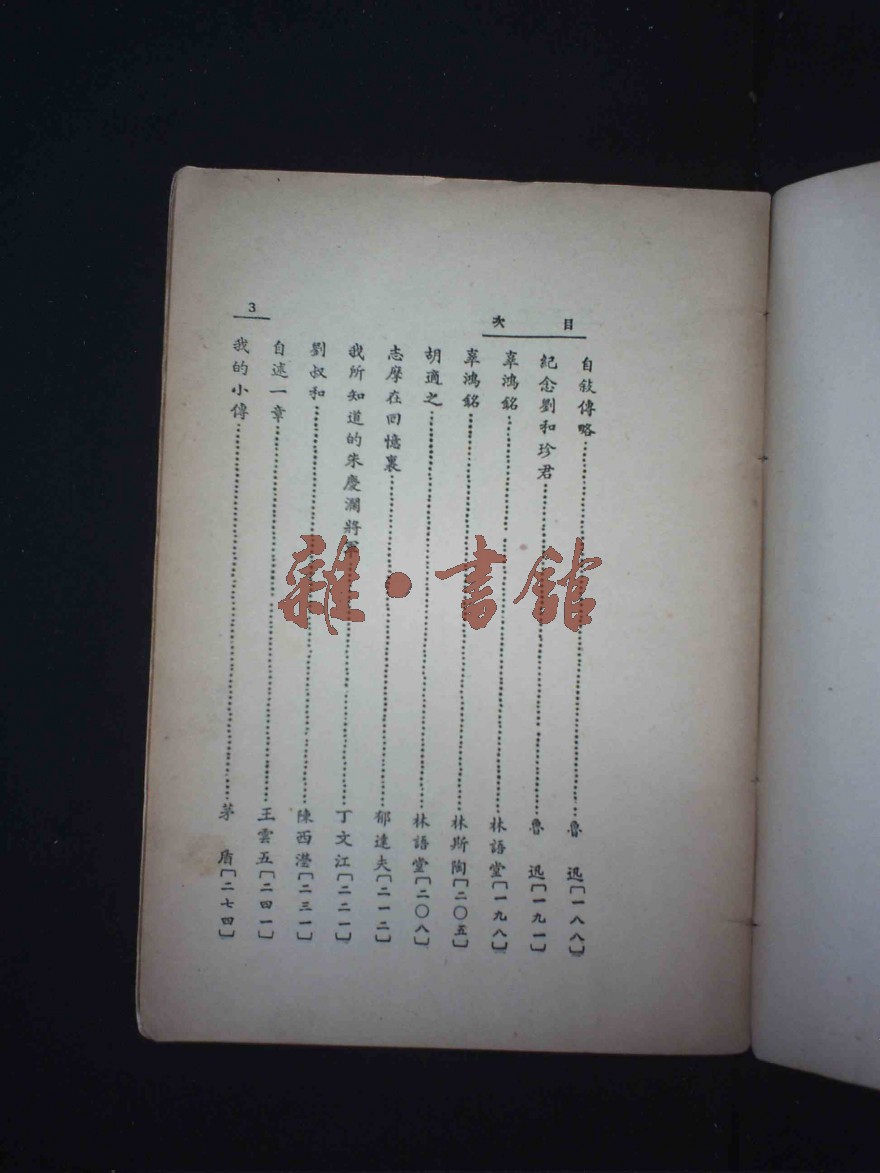 目次
3
自敍傳略……魯迅[一八八]
紀念劉和珍君……魯迅[一九一]
辜鴻銘……林語堂[一九八]
辜鴻銘……林斯陶[二〇五]
胡適之……林語堂[二〇八]
志摩在回憶裏……郁達夫[二一二]
我所知道的朱慶瀾將軍……丁文江[二二一]
劉叔和……陳西瀅[二三一]
自述一章……王雲五[二四一]
我的小傳……茅盾[二七四]
雜·書館